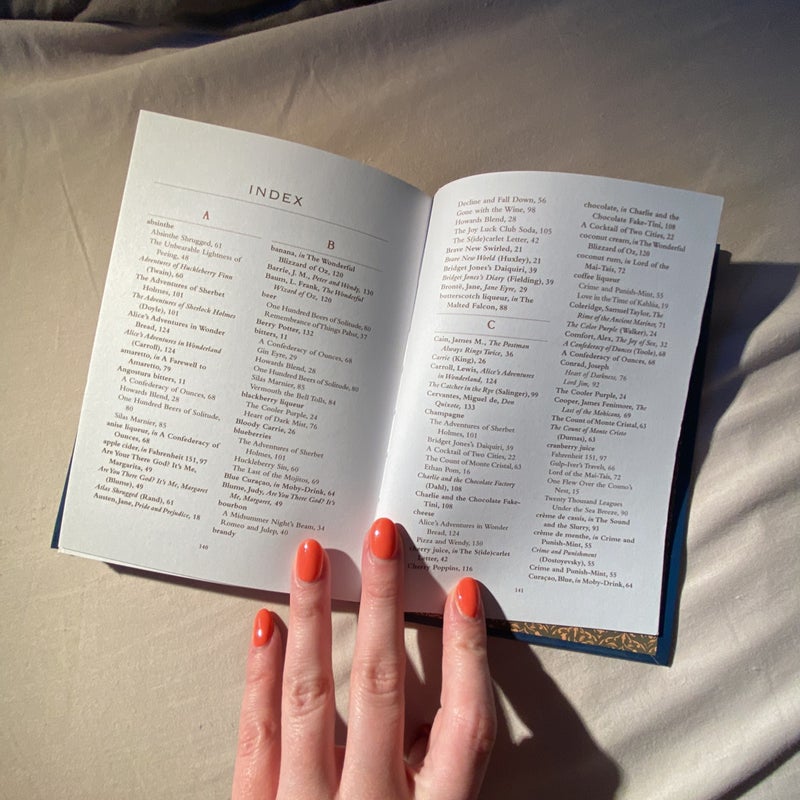 INDEX
A
absinthe
Absinthe Shrugged, 61
The Unbearable Lightness of
Peeing, 48
Adventures of Huckleberry Finn
(Twain), 60
The Adventures of Sherbet
Holmes, 101
The Adventures of Sherlock Holmes
(Doyle), 101
Alice's Adventures in Wonder
Bread, 124
Alice's Adventures in Wonderland
(Carroll), 124
amaretto, in A Farewell to
Amaretto, 79
Angostura bitters, 11
A Confederacy of Ounces, 68
Howards Blend, 28
One Hundred Beers of Solitude,
80
Silas Marnier, 85
anise liqueur, in A Confederacy of
Ounces, 68
apple cider, in Fahrenheit 151, 97
Are Your There God? It's Me,
Margarita, 49
Are You There God? It's Me, Margaret
(Blume), 49
Atlas Shrugged (Rand), 61
Austen, Jane, Pride and Prejudice, 18
B
banana, in The Wonderful
Blizzard of Oz, 120
Barrie, J. M., Peter and Wendy, 130
Baum, L. Frank, The Wonderful
Wizard of Oz, 120
beer
One Hundred Beers of Solitude, 80
Remembrance of Things Pabst, 37
Berry Potter, 132
bitters, 11
A Confederacy of Ounces, 68
Gin Eyre, 29
Howards Blend, 28
One Hundred Beers of Solitude, 80
Silas Marnier, 85
Vermouth the Bell Tolls, 84
blackberry liqueur
The Cooler Purple, 24
Heart of Dark Mist, 76
Bloody Carrie, 26
blueberries
The Adventures of Sherbet
Holmes, 101
Huckleberry Sin, 60
The Last of the Mojitos, 69
Blue Curaçao, in Moby-Drink, 64
Blume, Judy, Are You There God? It's
Me, Margaret, 49
bourbon
A Midsummer Night's Beam, 34
Romeo and Julep, 40
brandy
140
Decline and Fall Down, 56
Gone with the Wine, 98
Howards Blend, 28
The Joy Luck Club Soda, 105
The S(ide)carlet Letter, 42
Brave New Swirled, 21
Brave New World (Huxley), 21
Bridget Jones's Daiquiri, 39
Bridget Jones's Diary (Fielding), 39
Brontë, Jane, Jane Eyre, 29
butterscotch liqueur, in The
Malted Falcon, 88
C
Cain, James M., The Postman
Always Rings Twice, 36
Carrie (King), 26
Carroll, Lewis, Alice's Adventures
in Wonderland, 124
The Catcher in the Rye (Salinger), 99
Cervantes, Miguel de, Don
Quixote, 133
Champagne
The Adventures of Sherbet
Holmes, 101
Bridget Jones's Daiquiri, 39
A Cocktail of Two Cities, 22
The Count of Monte Cristal, 63
Ethan Pom, 16
Charlie and the Chocolate Factory
(Dahl), 108
Charlie and the Chocolate Fake-
Tini, 108
cheese
Alice's Adventures in Wonder
Bread, 124
Pizza and Wendy, 130
cherry juice, in The S(ide)carlet
Letter, 42
Cherry Poppins, 116
chocolate, in Charlie and the
Chocolate Fake-Tini, 108
A Cocktail of Two Cities, 22
coconut cream, in The Wonderful
Blizzard of Oz, 120
coconut rum, in Lord of the
Mai-Tais, 72
coffee liqueur
Crime and Punish-Mint, 55
Love in the Time of Kahlúa, 19
Coleridge, Samuel Taylor, The
Rime of the Ancient Mariner, 71
The Color Purple (Walker), 24
Comfort, Alex, The Joy of Sex, 32
A Confederacy of Dunces (Toole), 68
A Confederacy of Ounces, 68
Conrad, Joseph
Heart of Darkness, 76
Lord Jim, 92
The Cooler Purple, 24
Cooper, James Fenimore, The
Last of the Mohicans, 69
The Count of Monte Cristal, 63
The Count of Monte Cristo
(Dumas), 63
cranberry juice
Fahrenheit 151, 97
Gulp-iver's Travels, 66
Lord of the Mai-Tais, 72
One Flew Over the Cosmo's
Nest, 15
Twenty Thousand Leagues
Under the Sea Breeze, 90
crème de cassis, in The Sound
and the Slurry, 93
crème de menthe, in Crime and
Punish-Mint, 55
Crime and Punishment
(Dostoyevsky), 55
Crime and Punish-Mint, 55
Curaçao, Blue, in Moby-Drink, 64
141